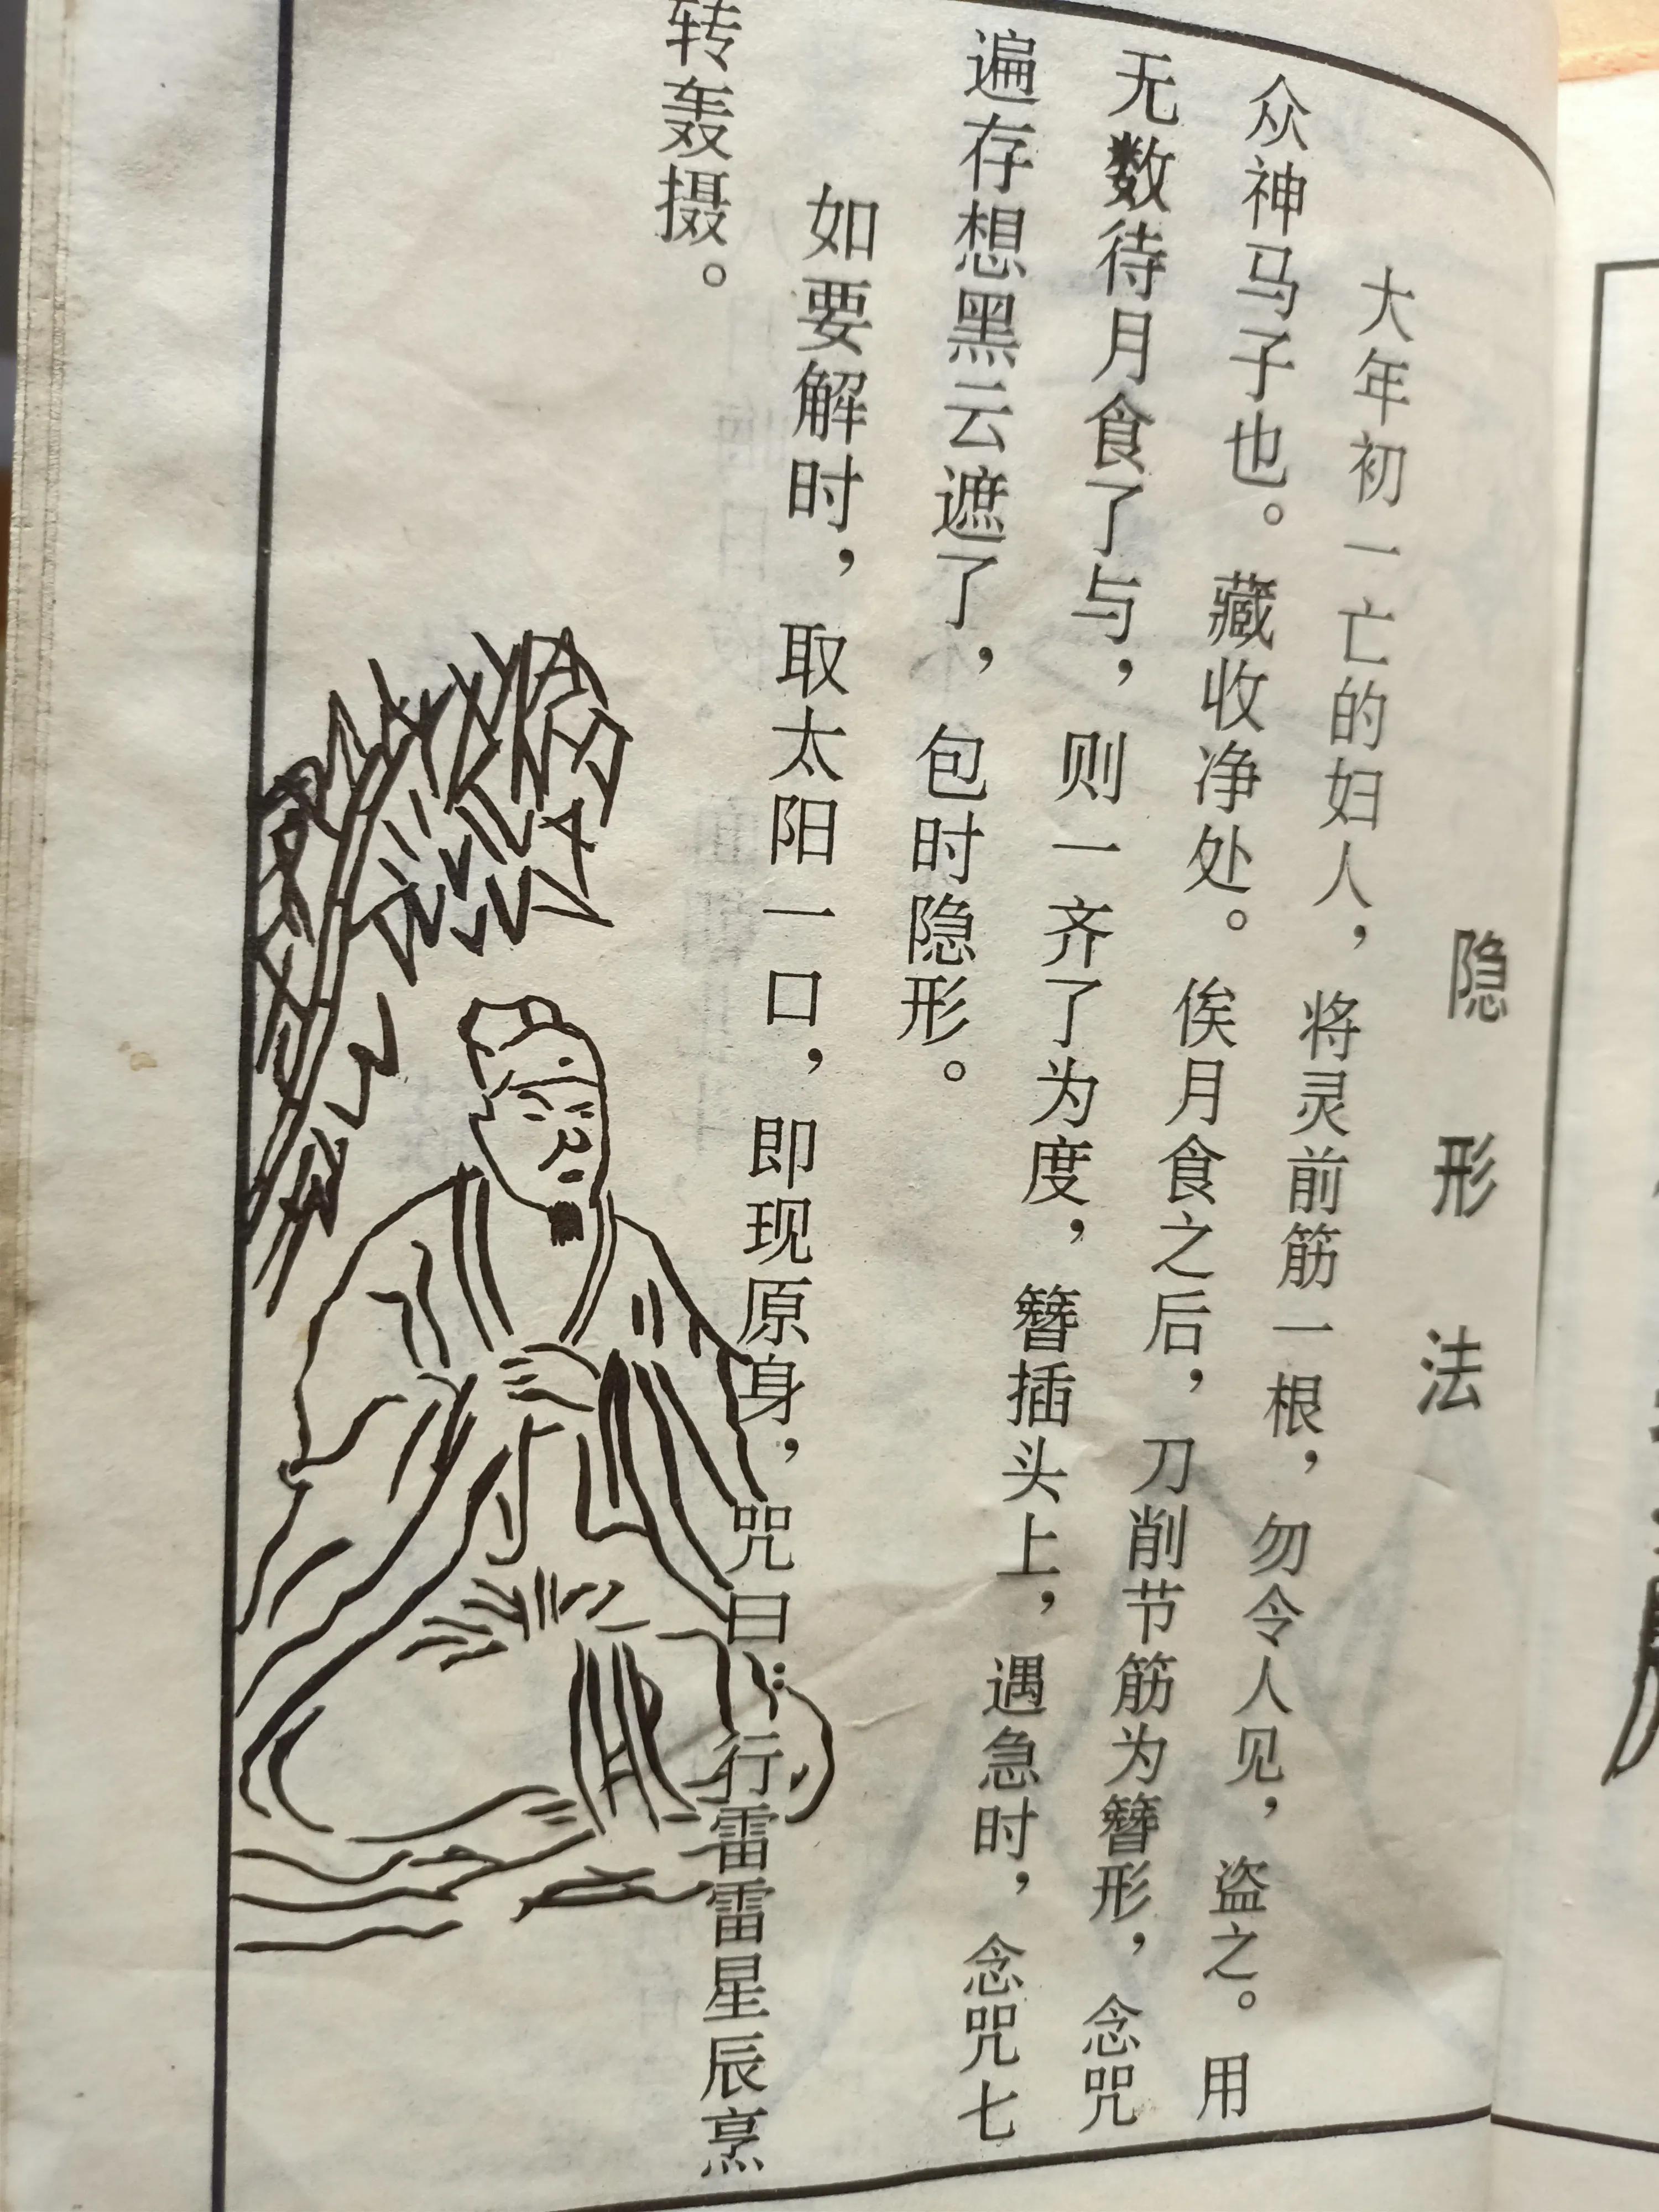 隐形法
大年初一亡的妇人，将灵前筋一根，勿令人见，盗之。用
众神马子也。藏收净处。俟月食之后，刀削节筋为簪形，念咒
无数待月食了与，则一齐了为度，簪插头上，遇急时，念咒七
遍存想黑云遮了，包时隐形。
如要解时，取太阳一口，即现原身，咒曰：行雷雷星辰烹
转轰摄。